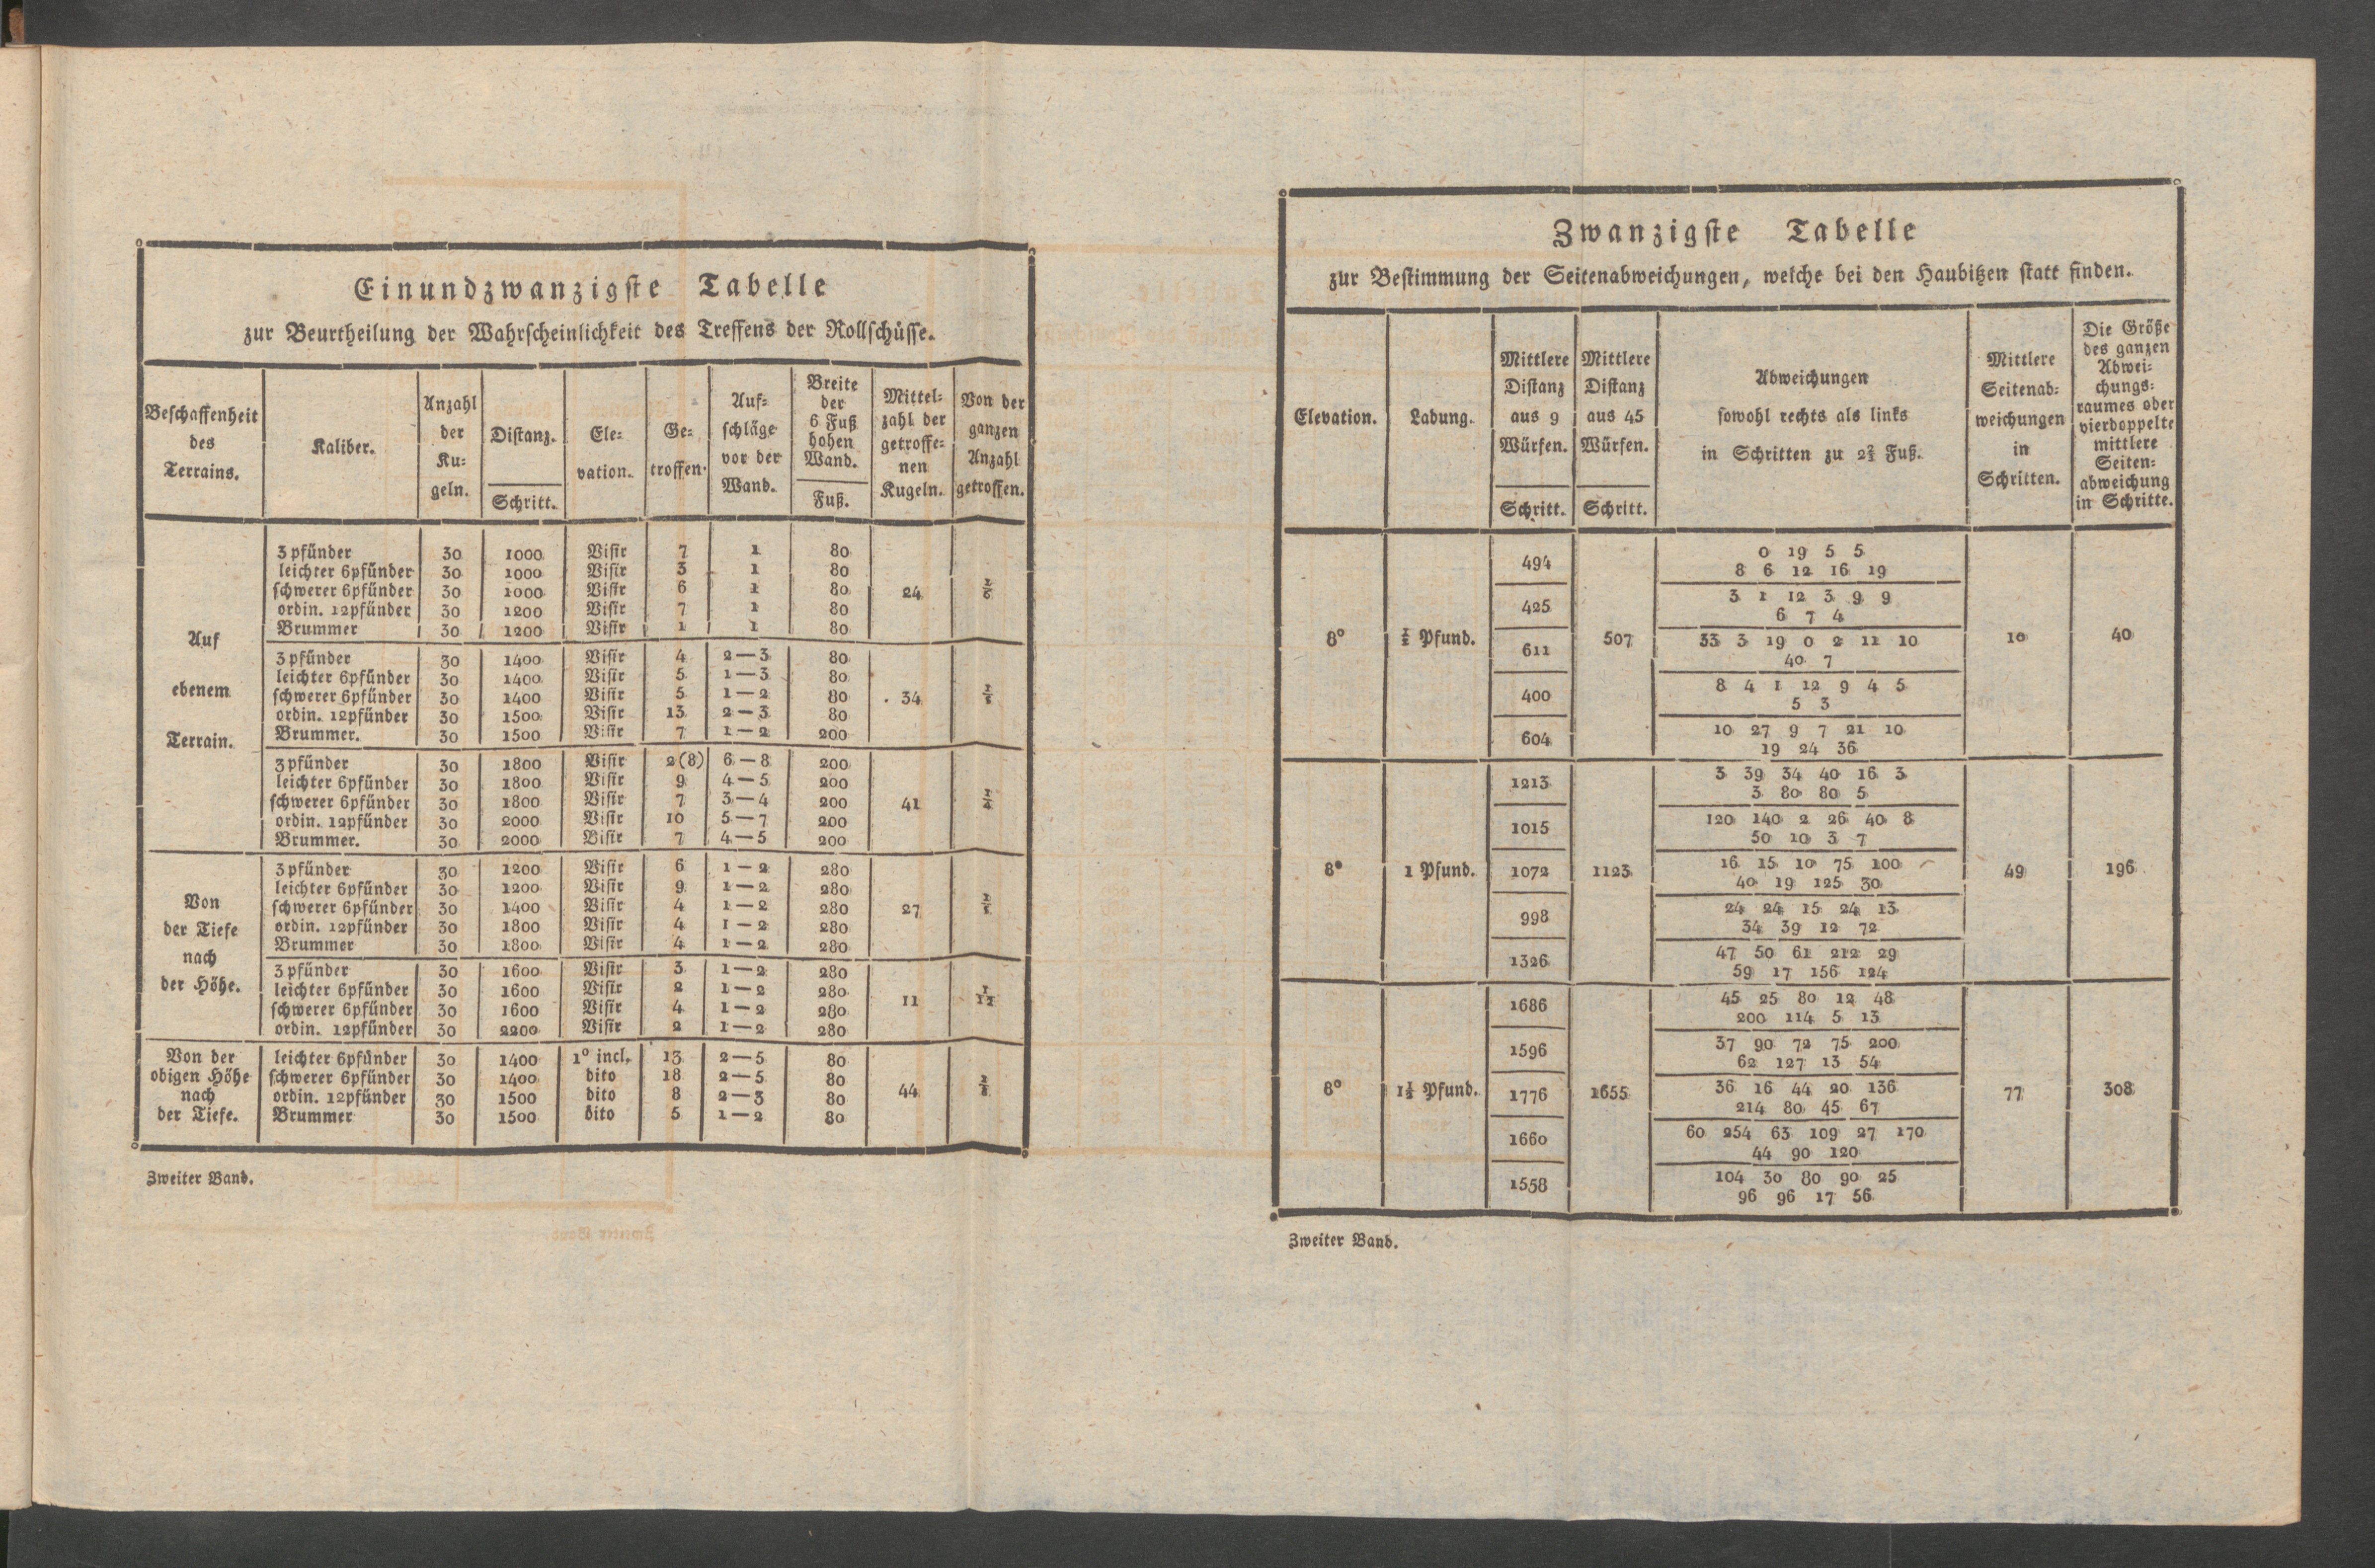 Einundzwanzigste Tabelle
zur Beurtheilung der Wahrscheinlichkeit des Treffens der Rollschüsse.
Beschaffenheit des Terrains. | Kaliber. | Anzahl der Ku- geln. | Distanz. Schritt. | Ele- vation. | Ge- troffen. | Auf- schläge vor der Wand. | Breite der 6 Fuß hohen Wand. Fuß. | Mittel- zahl der getroffe- nen Kugeln. | Von der ganzen Anzahl getroffen.
Auf ebenem Terrain.
3pfünder 30 1000 Visir 7 1 80
leichter 6pfünder 30 1000 Visir 3 1 80
schwerer 6pfünder 30 1000 Visir 6 1 80 24 1/6
ordin. 12pfünder 30 1200 Visir 7 1 80
Brummer 30 1200 Visir 1 1 80
3pfünder 30 1400 Visir 4 2—3 80
leichter 6pfünder 30 1400 Visir 5 1—3 80
schwerer 6pfünder 30 1400 Visir 5 1—2 80 34
ordin. 12pfünder 30 1500 Visir 13 2—3 80
Brummer. 30 1500 Visir 7 1—2 200
3pfünder 30 1800 Visir 2(8) 6—8 200
leichter 6pfünder 30 1800 Visir 9 4—5 200
schwerer 6pfünder 30 1800 Visir 7 3—4 200 41 1/4
ordin. 12pfünder 30 2000 Visir 10 5—7 200
Brummer. 30 2000 Visir 7 4—5 200
Von der Tiefe nach der Höhe.
3pfünder 30 1200 Visir 6 1—2 280
leichter 6pfünder 30 1200 Visir 9 1—2 280
schwerer 6pfünder 30 1400 Visir 4 1—2 280 27
ordin. 12pfünder 30 1800 Visir 4 1—2 280
Brummer 30 1800 Visir 4 1—2 280
3pfünder 30 1600 Visir 3 1—2 280
leichter 6pfünder 30 1600 Visir 2 1—2 280
schwerer 6pfünder 30 1600 Visir 4 1—2 280 11 1/12
ordin. 12pfünder 30 2200 Visir 2 1—2 280
Von der obigen Höhe nach der Tiefe.
leichter 6pfünder 30 1400 1° incl. 13 2—5 80
schwerer 6pfünder 30 1400 dito 18 2—5 80
ordin. 12pfünder 30 1500 dito 8 2—3 80 44
Brummer 30 1500 dito 5 1—2 80
Zweiter Band.
Zwanzigste Tabelle
zur Bestimmung der Seitenabweichungen, welche bei den Haubitzen statt finden.
Elevation. | Ladung. | Mittlere Distanz aus 9 Würfen. Schritt. | Mittlere Distanz aus 45 Würfen. Schritt. | Abweichungen sowohl rechts als links in Schritten zu 2⅔ Fuß. | Mittlere Seitenab- weichungen in Schritten. | Die Größe des ganzen Abwei- chungs- raumes oder vierdoppelte mittlere Seiten- abweichung in Schritte.
8° ½ Pfund. 507 10 40
494 0 19 5 5
8 6 12 16 19
425 3 1 12 3 9 9
6 7 4
611 33 3 19 0 2 11 10
40 7
400 8 4 1 12 9 4 5
5 3
604 10 27 9 7 21 10
19 24 36
8° 1 Pfund. 1123 49 196
1213 3 39 34 40 16 3
3 80 80 5
1015 120 140 2 26 40 8
50 10 3 7
1072 16 15 10 75 100
40 19 125 30
998 24 24 15 24 13
34 39 12 72
1326 47 50 61 212 29
59 17 156 124
8° 1½ Pfund. 1655 77 308
1686 45 25 80 12 48
200 114 5 13
1596 37 90 72 75 200
62 127 13 54
1776 36 16 44 20 136
214 80 45 67
1660 60 254 63 109 27 170
44 90 120
1558 104 30 80 90 25
96 96 17 56
Zweiter Band.